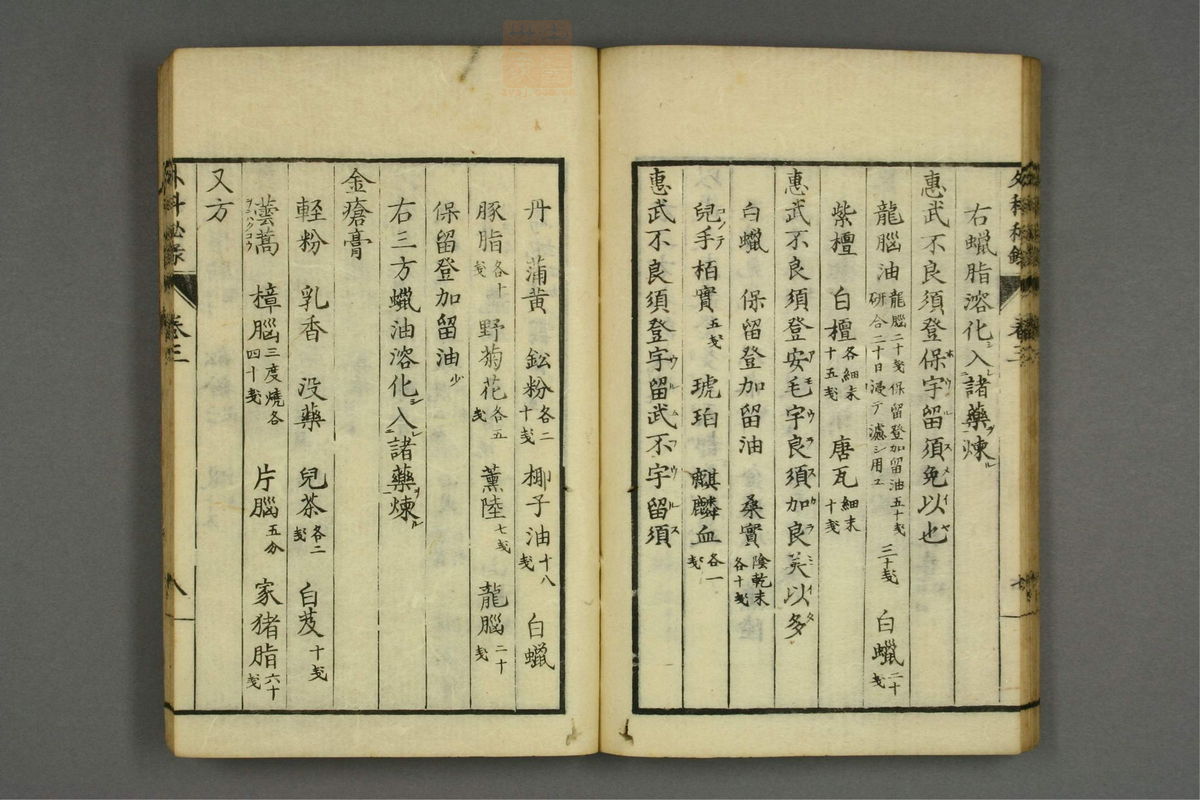 右蠟脂溶化ニ入レ諸藥ヲ煉ル
惠武不良須登保宇留須免以也
龍腦油 龍腦二十戔 保留登加留油五十戔 研合二十日浸テ濾シ用ユ 三十戔 白蠟二十戔
紫檀 白檀各細末十五戔 唐瓦細末十戔
惠武不良須登安毛宇良須加良美以多
白蠟 保留登加留油 桑實陰乾末各十戔
兒手栢實五戔 琥珀 麒麟血各一戔
惠武不良須登宇留武不宇留須
外科秘錄 卷三 七
丹 蒲黄 鈆粉各二十戔 椰子油十八戔 白蠟
豚脂各十戔 野菊花各五戔 薫陸七戔 龍腦二十戔
保留登加留油少
右三方蠟油溶化シ入レ諸藥ヲ煉ル
金瘡膏
軽粉 乳香 没藥 兒茶各二戔 白芨十戔
蕓蒿 樟腦三度燒各四十戔 片腦五分 家猪脂六十戔
又方
外科秘錄 卷三 八